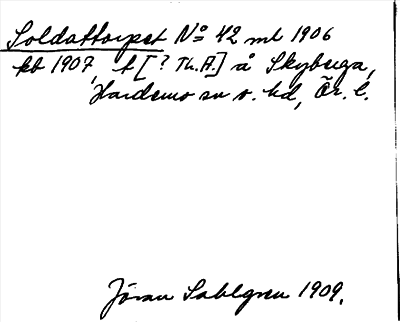 Soldattorpet No 42 ml 1906
kb 1907, t [? Th.A.] å Skyberga,
Hardemo sn o. hd, Ör. l.
Jöran Sahlgren 1909.